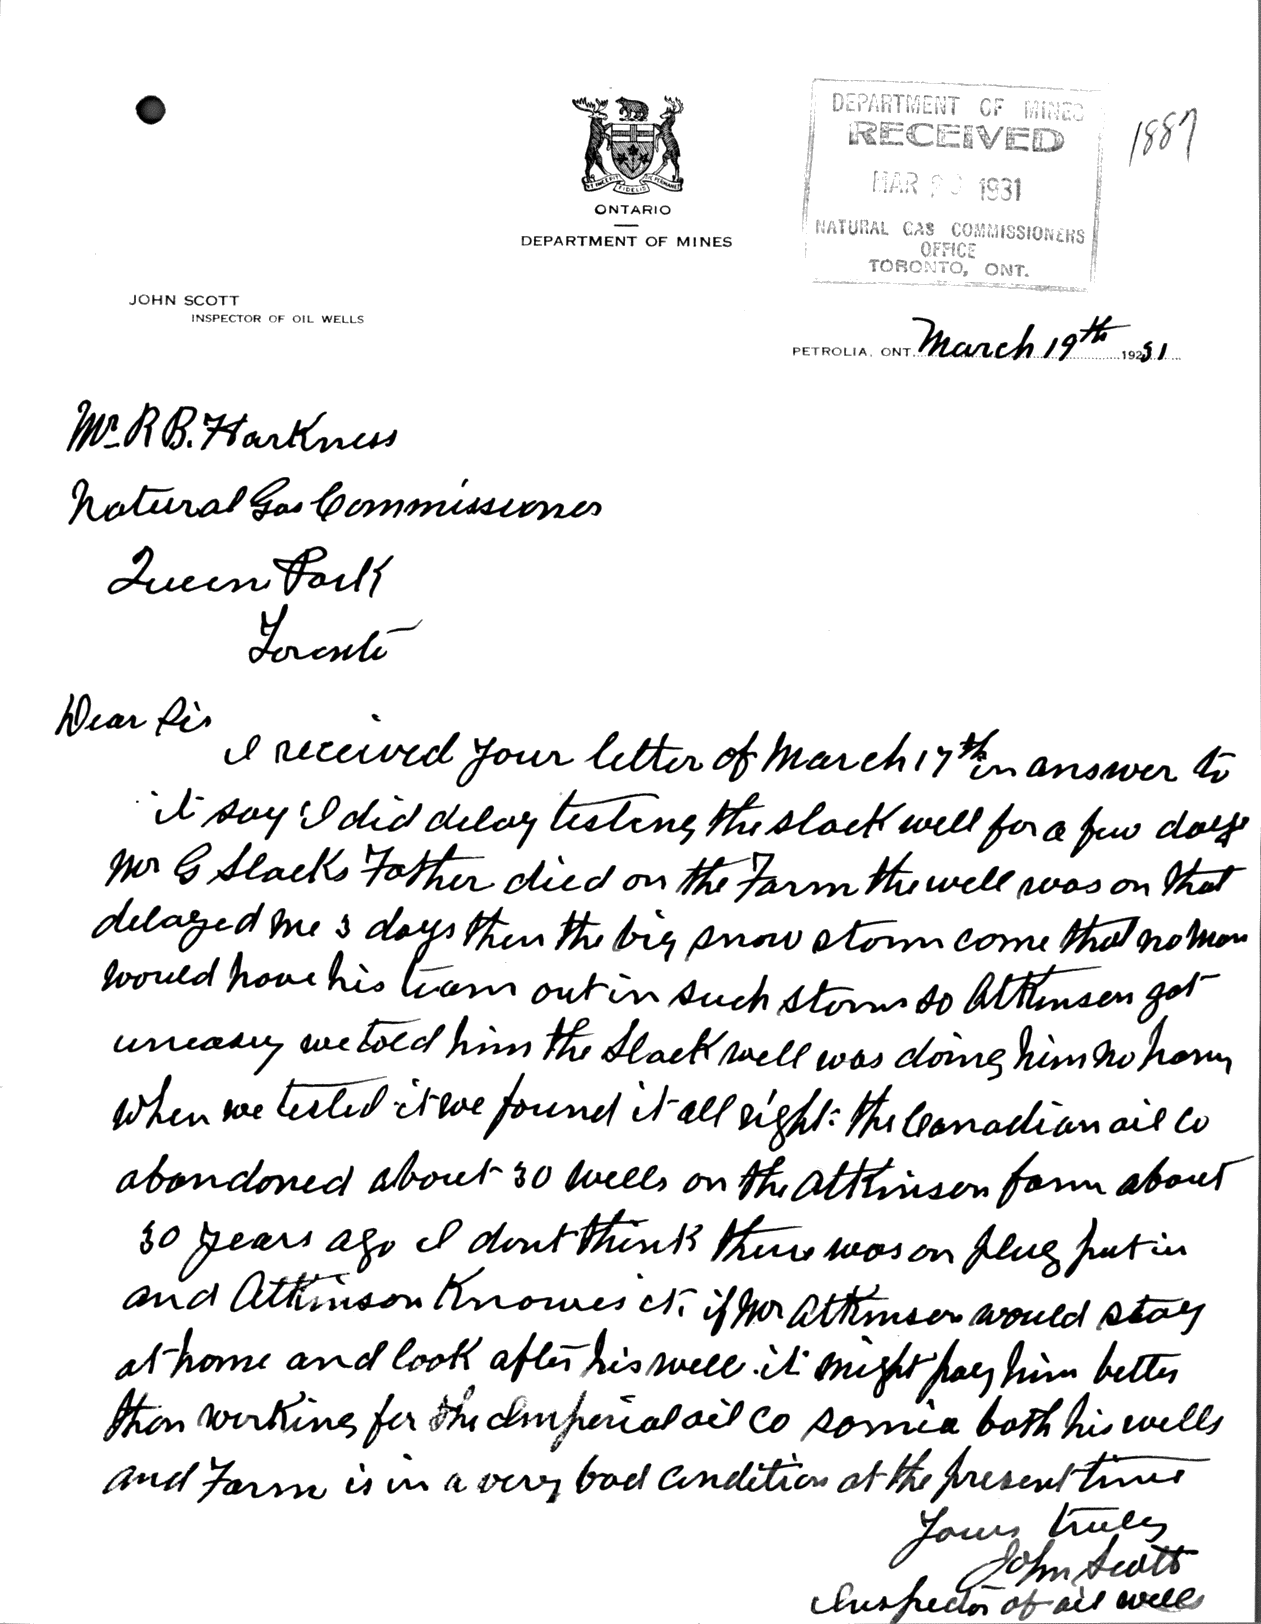 DEPARTMENT OF MINES
RECEIVED
MAR 1931
NATURAL GAS COMMISSIONERS
OFFICE
TORONTO, ONT.
1887
ONTARIO
DEPARTMENT OF MINES
JOHN SCOTT
INSPECTOR OF OIL WELLS
PETROLIA, ONT. March 19th 1931
Mr R B. Harkness
Natural Gas Commissioner
Queens Park
Toronto
Dear Sir
I received your letter of March 17th in answer to
it say I did delay testing the slack well for a few days
Mr G Slacks Father died on the Farm the well was on that
delayed me 3 days then the big snow storm come that no man
would have his team out in such storm so Atkinson got
uneasy we told him the Slack well was doing him no harm
when we tested it we found it all right: the Canadian oil co
abandoned about 30 wells on the Atkinson farm about
30 years ago I dont think there was on plug put in
and Atkinson Knowes it, if Mr Atkinson would stay
at home and look after his well it might pay him better
then working for the Imperial oil co sarnia both his wells
and Farm is in a very bad condition at the present time
Yours truly
John Scott
Inspector of oil wells